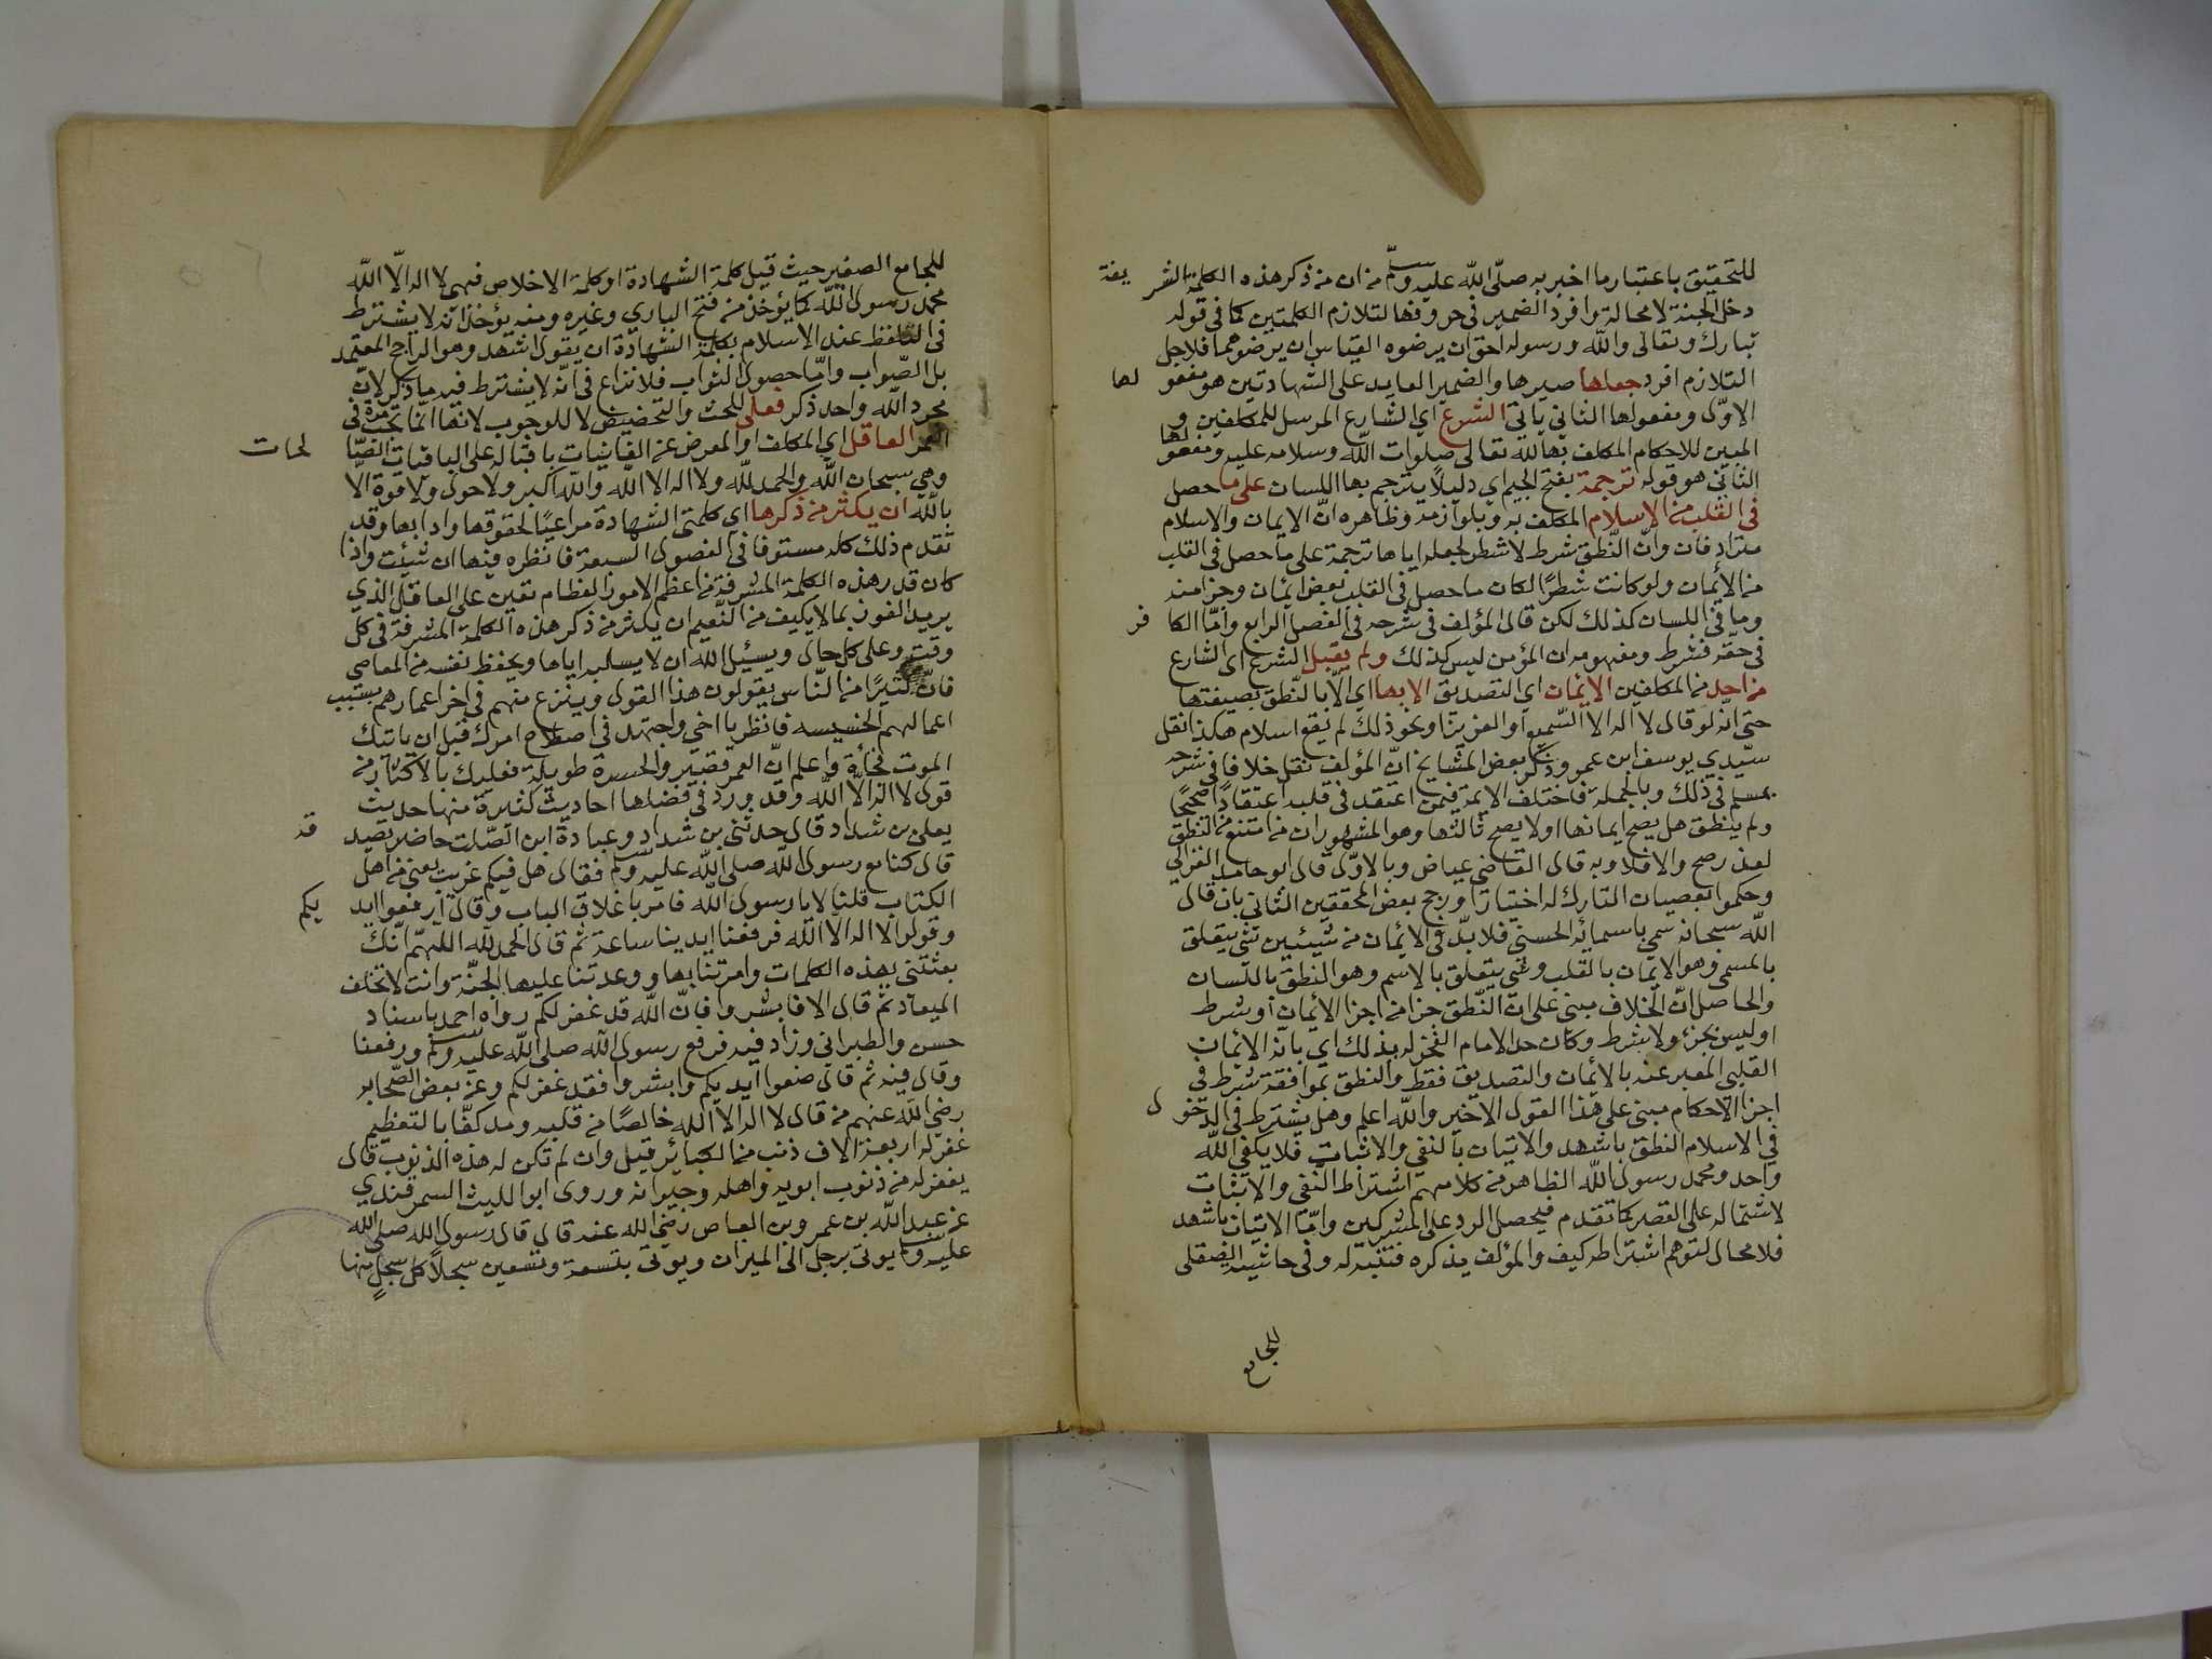 للتحقيق باعتبار ما اخبر به صلّى اللّه عليه وسلّم من ان من ذكر هذه الكلمة الشريفة
دخل الجنة لا محالة وافرد الضمير في حروفها لتلازم الكلمتين كما في قوله
تبارك وتعالى واللّه ورسوله احق ان يرضوه القياس ان يرضوهما فلاجل
التلازم افرد جعلها صيرها والضمير العايد على الشهادتين هو مفعولها
الاوّل ومفعولها الثاني ياتي الشرع اي الشارع المرسل للمكلفين و
المبين للاحكام المكلف بها للّه تعالى صلوات اللّه وسلامه عليه ومفعولها
الثاني هو قوله ترجمة بفتح الجيم اي دليلاً يترجم بها اللسان على ما حصل
في القلب من الاسلام المكلف به وبلوازمه وظاهره انّ الايمان والاسلام
مترادفان وانّ النّطق شرط لا شطر لجعله اياها ترجمة على ما حصل في القلب
من الأيمان ولو كانت شطرًا لكان ما حصل في القلب بعض ايمان وجزا منه
وما في اللسان كذلك لكن قال المؤلف في شرحه في الفصل الرابع وامّا الكافر
في حقه فشرط ومفهومه ان المؤمن ليس كذلك ولم يقبل الشرع اى الشارع
من احد من المكلفين الايمان اي التصديق الا بها اي الّا بالنّطق بصيغتها
حتى انّه لو قال لا اله الا السّميع او العزيز او نحو ذلك لم يقع اسلام هكذا نقل
سيّدي يوسف ابن عمر وذكر بعض المشايخ انّ المؤلف نقل خلافا في شرحه
بمسلم في ذلك وبالجملة فاختلف الايمة فيمن اعتقد في قلبه اعتقادًا صحيحًا
ولم ينطق هل يصح ايمانها اولا يصح ثالثها وهو المشهور ان من امتنع من النطق
لعذر صح والا فلا وبه قال القاضي عياض وبالاوّل قال ابو حامد الغزالي
وحكموا بعصيان التارك له اختيارًا ورجح بعض المحققين الثاني بان قال
اللّه سبحانه سمي باسمائه الحسنى فلا بدّ في الايمان من شيئين شئ يتعلق
بالمسمى وهو الايمان بالقلب وشئ يتعلق بالاسم وهو النطق باللسان
والحاصل انّ الخلاف مبنى على انّ النّطق جزا من اجزا الايمان او شرط
او ليس بجزء ولا شرط وكان حد الامام الفخر له بذلك اي بانه الايمان
القلبي المعبر عنه بالايمان والتصديق فقط والنطق بموافقة شرط في
اجزا الاحكام مبنى على هذا القول الاخير واللّه اعلم وهل يشترط في الدخول
في الاسلام النطق باشهد والاتيان بالنفي والاثبات فلا يكفي اللّه
واحد ومحمد رسول اللّه الظاهر من كلامهم اشتراط النّفي والاثبات
لاشتماله على القصر كما تقدم فيحصل الرد على المشركين وامّا الاتيان باشهد
فلا محال لتوهم اشتراطه كيف والمؤلف يذكره فتنبه له وفي حاشية
للجامع
للجامع الصغير حيث قيل كلمة الشهادة او كلمة الاخلاص فهي لا اله الّا اللّه
محمد رسول اللّه كما يؤخذ من فتح الباري وغيره ومنه يؤخذ انّه لا يشترط
في التلفظ عند الاسلام بكلمة الشهادة ان يقول اشهد وهو الراجح المعتمد
بل الصّواب وامّا حصول الثواب فلا نزاع في انّه لا يشترط فيه ما ذكر لانّ
مجرد اللّه واحد ذكر فعلى للحث والتحضيض لا للوجوب لانها انّما تجب مرة في
العمر العاقل اي المكلف او المعرض عن الفانيات باقباله على الباقيات الصّالحات
وهي سبحان اللّه والحمد للّه ولا اله الا اللّه واللّه اكبر ولا حول ولا قوة الّا
باللّه ان يكثر من ذكرها اي كلمتى الشهادة مراعيًا لحقوقها وادابها وقد
تقدم ذلك كله مستوفا في الفصول السبعة فانظره فيها ان شئت واذا
كان قدر هذه الكلمة المشرفة من اعظم الامور العظام تعين على العاقل الذي
يريد الفوز بما لا يكيف من النّعيم ان يكثر من ذكر هذه الكلمة المشرفة في كل
وقت وعلى كل حال ويسئل اللّه ان لا يسلبه اياها ويحفظ نفسه من المعاصي
فانّ كثيرًا من النّاس يقولون هذا القول وينزع منهم في اخر اعمارهم بسبب
اعمالهم الخسيسه فانظر يا اخي واجتهد في اصلاح امرك قبل ان ياتيك
الموت فجأة واعلم انّ العمر قصير والحسرة طويلة فعليك بالاكثار من
قول لا اله الّا اللّه وقد ورد في فضلها احاديث كثيرة منها حديث
يعلى بن شداد قال حدثنى بن شداد وعبادة ابن الصّلت حاضر يصدقه
قال كنا مع رسول اللّه صلى اللّه عليه وسلم فقال هل فيكم غريب يعنى من اهل
الكتاب قلنا لا يا رسول اللّه فامر باغلاق الباب وقال ارفعوا ايديكم
وقولوا لا اله الّا اللّه فرفعنا ايدينا ساعة ثم قال الحمد للّه اللهمّ انّك
بعثتنى بهذه الكلمات وامرتنا بها ووعدتنا عليها الجنّة وانت لا تخلف
الميعاد ثم قال الا فابشروا فانّ اللّه قد غفر لكم رواه احمد باسناد
حسن والطبراني وزاد فيه فرفع رسول اللّه صلى اللّه عليه وسلم ورفعنا
وقال فيه ثم قال ضعوا ايديكم وابشروا فقد غفر لكم وعن بعض الصّحابه
رضي اللّه عنهم من قال لا اله الا اللّه خالصًا من قلبه ومد كفّا بالتعظيم
غفر له اربعة الاف ذنب من الكبائر قيل وان لم تكن له هذه الذنوب قال
يغفر له من ذنوب ابويه واهله وجيرانه وروى ابو الليث السمرقندي
عن عبد اللّه بن عمرو بن العاص رضي اللّه عنه قال قال رسول اللّه صلى اللّه
عليه وسلم يوتى برجل الى الميزان ويوتى بتسعة وتسعين سجلاً كل سجل منها